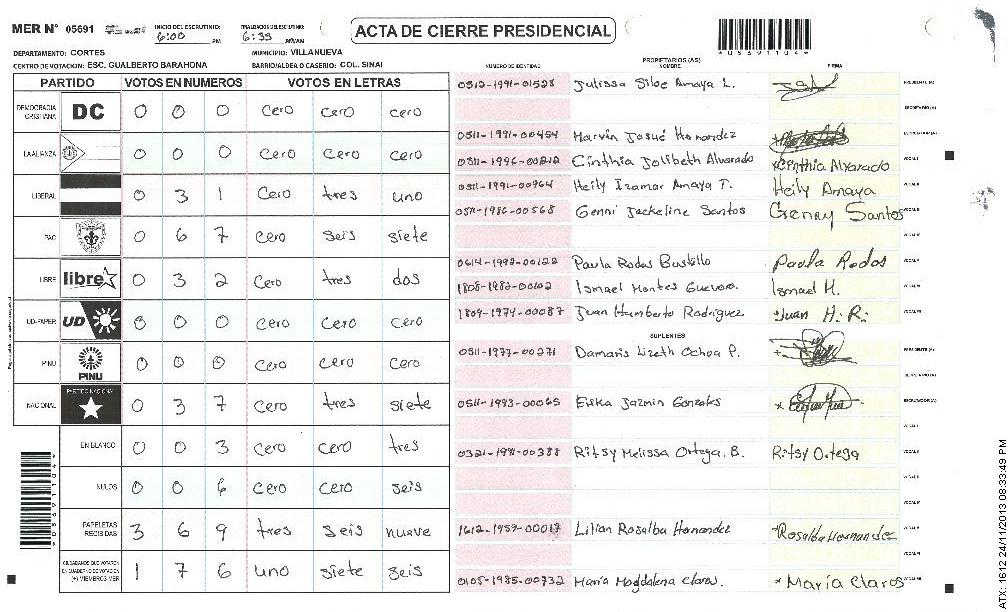 MER N° 05691
INICIO DEL ESCRUTINIO: 6:00 PM
FINALIZACION DEL ESCRUTINIO: 6:35 AM/PM
ACTA DE CIERRE PRESIDENCIAL
05691104
DEPARTAMENTO: CORTES
MUNICIPIO: VILLANUEVA
CENTRO DE VOTACION: ESC. GUALBERTO BARAHONA
BARRIO/ALDEA O CASERIO: COL. SINAI
PARTIDO VOTOS EN NUMEROS VOTOS EN LETRAS
DEMOCRACIA CRISTIANA DC 0 0 0 cero cero cero
LA ALIANZA 0 0 0 cero cero cero
LIBERAL 0 3 1 cero tres uno
PAC 0 6 7 cero seis siete
LIBRE libre 0 3 2 cero tres dos
UD-FAPER UD 0 0 0 cero cero cero
PINU PINU 0 0 0 cero cero cero
NACIONAL PARTIDO NACIONAL 0 3 7 cero tres siete
EN BLANCO 0 0 3 cero cero tres
NULOS 0 0 6 cero cero seis
PAPELETAS RECIBIDAS 3 6 9 tres seis nueve
CIUDADANOS QUE VOTARON EN CUADERNO DE VOTACION (+) MIEMBROS MER 1 7 6 uno siete seis
PROPIETARIOS (AS)
NUMERO DE IDENTIDAD NOMBRE FIRMA
0512-1991-01528 Julissa Siloe Amaya L. PRESIDENTE (A)
SECRETARIO (A)
0511-1991-00454 Marvin Josué Hernandez ESCRUTADOR (A)
0511-1996-00212 Cinthia Jolibeth Alvarado x Cinthia Alvarado VOCAL I
0511-1991-00964 Heily Izamar Amaya T. Heily Amaya VOCAL II
0511-1986-00568 Genni Jackeline Santos Genny Santos VOCAL III
VOCAL IV
Paula Rodas Bustillo Paula Rodas VOCAL V
1808-1982-00102 Ismael Montes Guevara. Ismael M. VOCAL VI
1804-1974-00087 Juan Humberto Rodriguez Juan H. R. VOCAL VII
SUPLENTES
0511-1977-00271 Damaris Lizeth Ochoa P. PRESIDENTE (A)
SECRETARIO (A)
0511-1993-00065 Erika Jazmin Gonzales ESCRUTADOR (A)
VOCAL I
Ritsy Melissa Ortega. B. Ritsy Ortega VOCAL II
VOCAL III
VOCAL IV
1612-1959-00017 Lilian Rosalba Hernandez Rosalba Hernandez VOCAL V
VOCAL VI
0105-1985-00732 Maria Magdalena claros. * María Claros VOCAL VII
ATX: 1612 24/11/2013 08:33:49 PM